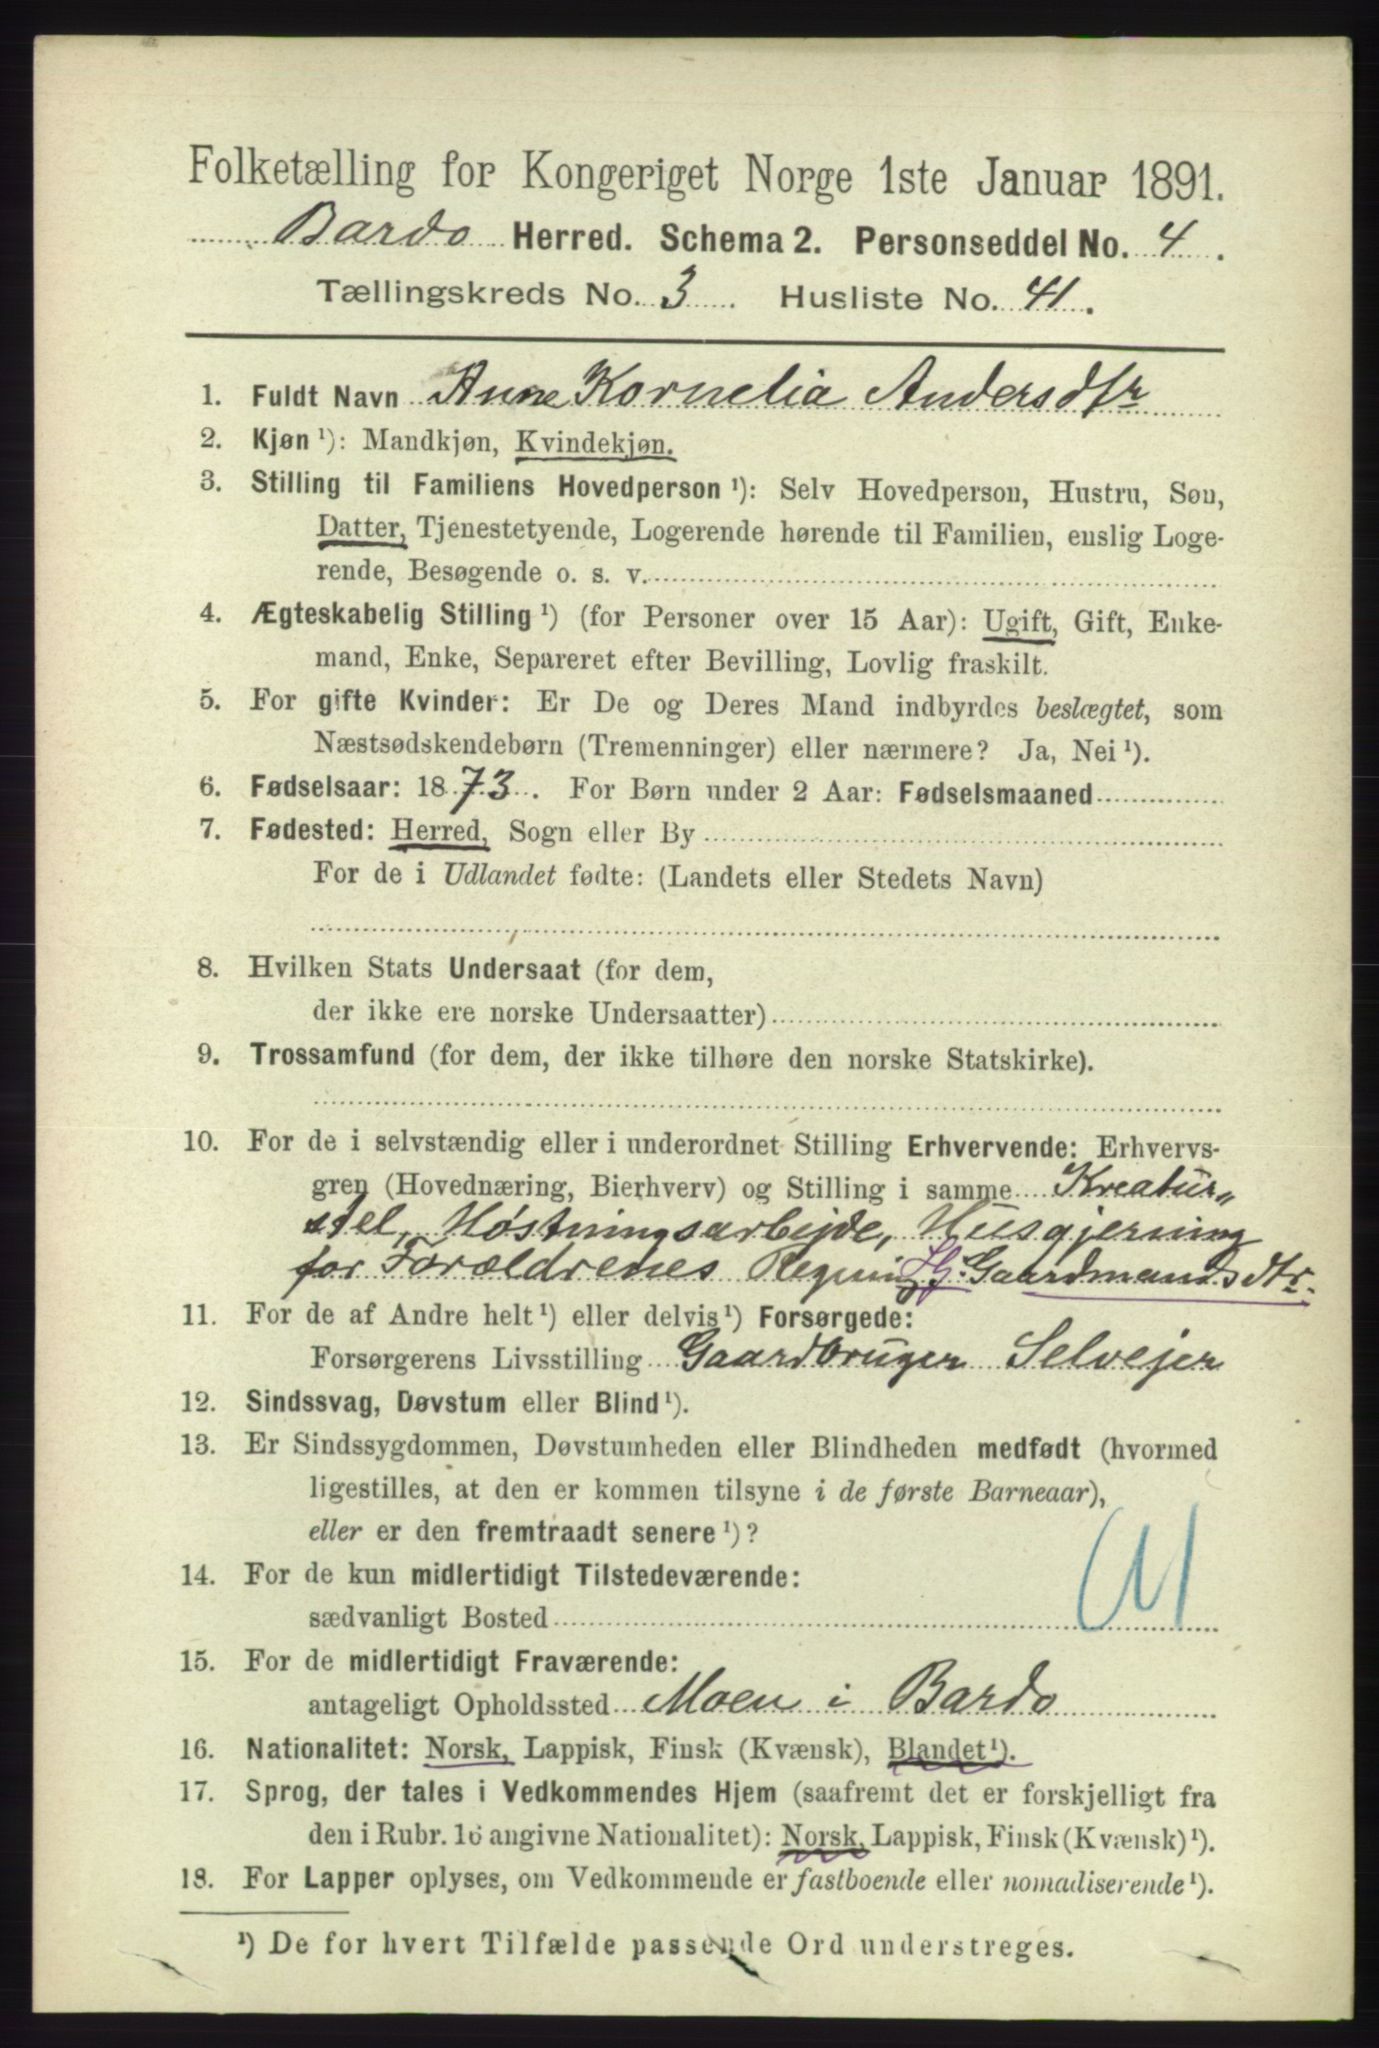 Folketælling for Kongeriget Norge 1ste Januar 1891.
Bardo Herred. Schema 2. Personseddel No. 4.
Tællingskreds No. 3 Husliste No. 41.
1. Fuldt Navn Anne Kornelia Andersdtr
2. Kjøn ¹): Mandkjøn, Kvindekjøn.
3. Stilling til Familiens Hovedperson ¹): Selv Hovedperson, Hustru, Søn,
Datter, Tjenestetyende, Logerende hørende til Familien, enslig Loge-
rende, Besøgende o. s. v.
4. Ægteskabelig Stilling ¹) (for Personer over 15 Aar): Ugift, Gift, Enke-
mand, Enke, Separeret efter Bevilling, Lovlig fraskilt.
5. For gifte Kvinder: Er De og Deres Mand indbyrdes beslægtet, som
Næstsødskendebørn (Tremenninger) eller nærmere? Ja, Nei ¹).
6. Fødselsaar: 1873. For Børn under 2 Aar: Fødselsmaaned
7. Fødested: Herred, Sogn eller By
For de i Udlandet fødte: (Landets eller Stedets Navn)
8. Hvilken Stats Undersaat (for dem,
der ikke ere norske Undersaatter)
9. Trossamfund (for dem, der ikke tilhøre den norske Statskirke).
10. For de i selvstændig eller i underordnet Stilling Erhvervende: Erhvervs-
gren (Hovednæring, Bierhverv) og Stilling i samme Kreatur„
stel, Høstningsarbejde, Husgjerning
for Forældrenes Regning Gaardmandsdtr.
11. For de af Andre helt ¹) eller delvis ¹) Forsørgede:
Forsørgerens Livsstilling Gaardbruger Selvejer
12. Sindssvag, Døvstum eller Blind ¹).
13. Er Sindssygdommen, Døvstumheden eller Blindheden medfødt (hvormed
ligestilles, at den er kommen tilsyne i de første Barneaar),
eller er den fremtraadt senere ¹)?
14. For de kun midlertidigt Tilstedeværende:
sædvanligt Bosted
15. For de midlertidigt Fraværende:
antageligt Opholdssted Moen i Bardo
16. Nationalitet: Norsk, Lappisk, Finsk (Kvænsk), Blandet ¹).
17. Sprog, der tales i Vedkommendes Hjem (saafremt det er forskjelligt fra
den i Rubr. 16 angivne Nationalitet): Norsk, Lappisk, Finsk (Kvænsk) ¹).
18. For Lapper oplyses, om Vedkommende er fastboende eller nomadiserende ¹).
¹) De for hvert Tilfælde passende Ord understreges.